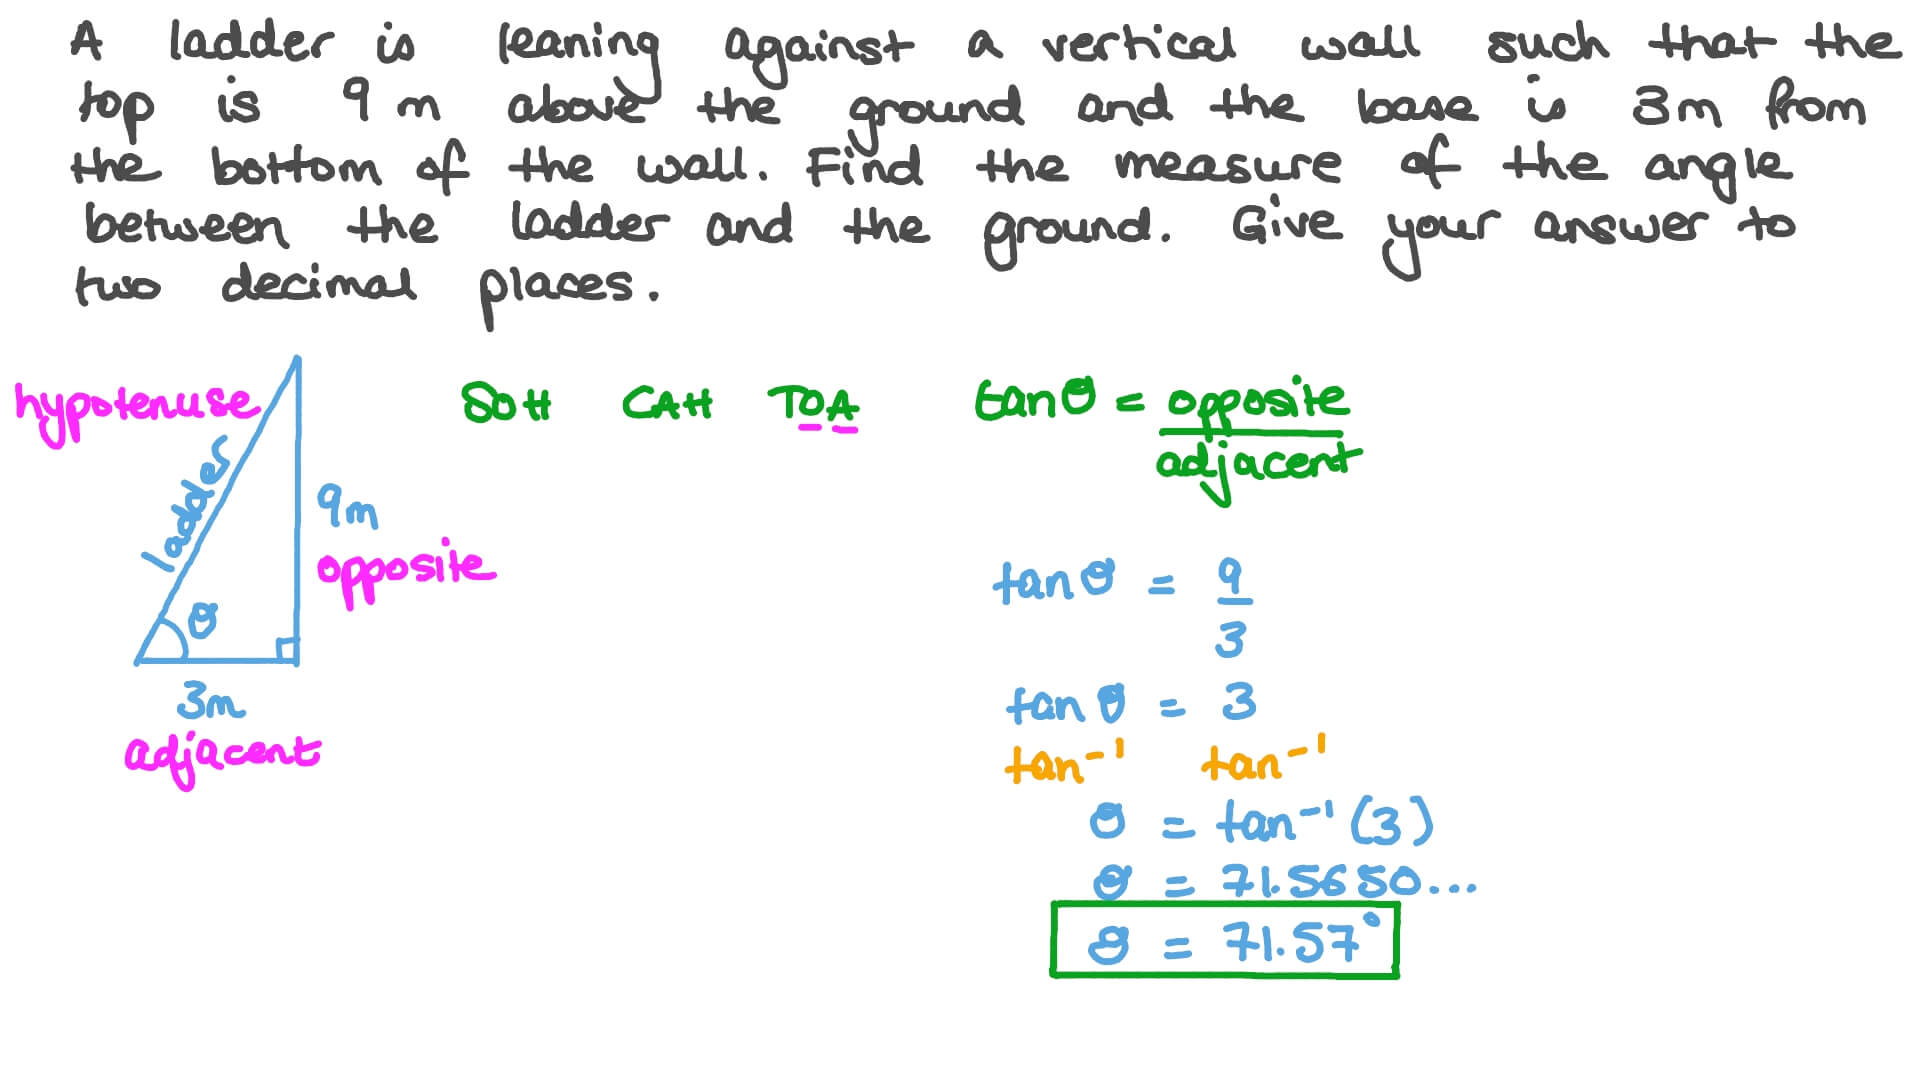 A ladder is leaning against a vertical wall such that the
top is 9 m above the ground and the base is 3m from
the bottom of the wall. Find the measure of the angle
between the ladder and the ground. Give your answer to
two decimal places.
hypotenuse
ladder
9m
opposite
θ
3m
adjacent
SOH CAH TOA
tanθ = opposite
adjacent
tanθ = 9
3
tanθ = 3
tan⁻¹ tan⁻¹
θ = tan⁻¹(3)
θ = 71.5650...
θ = 71.57°